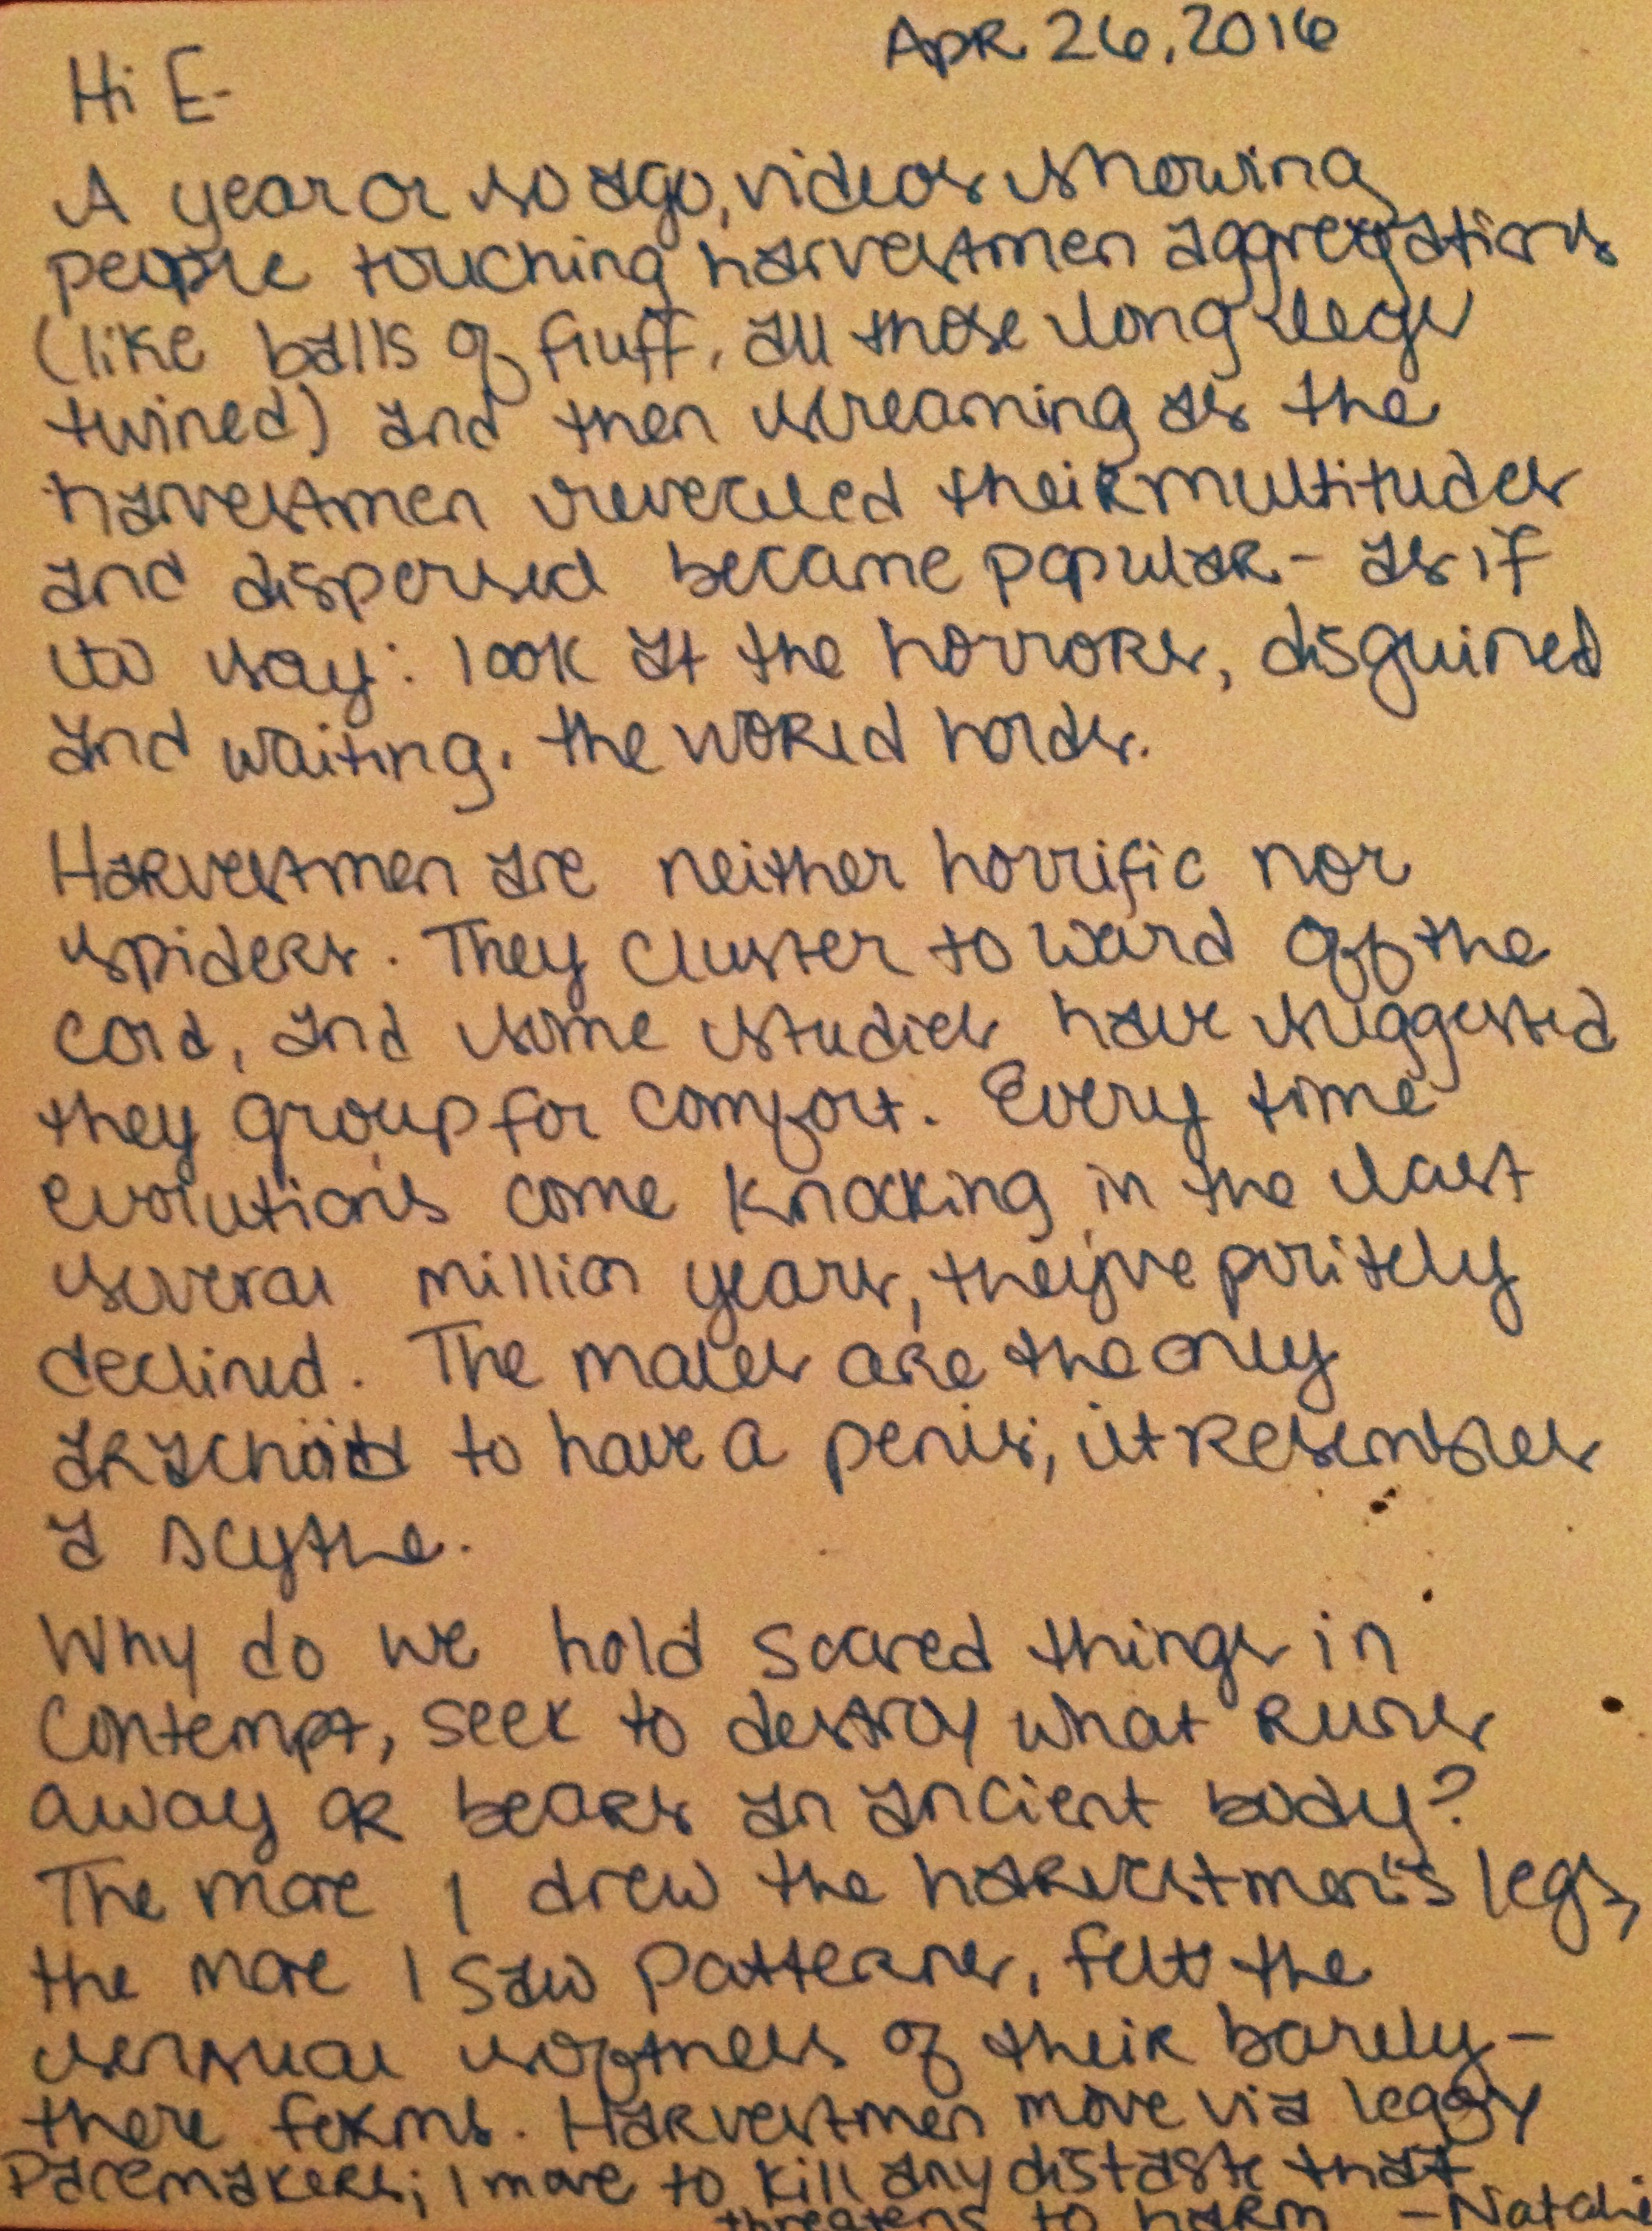 Apr 26, 2016
Hi E-
A year or so ago, videos showing
people touching harvestmen aggregations
(like balls of fluff, all those long legs
twined) and then screaming as the
harvestmen revealed their multitudes
and dispersed became popular - as if
to say: look at the horrors, disguised
and waiting, the world holds.
Harvestmen are neither horrific nor
spiders. They cluster to ward off the
cold, and some studies have suggested
they group for comfort. Every time
evolution's come knocking in the last
several million years, they've politely
declined. The males are the only
arachnids to have a penis; it resembles
a scythe.
Why do we hold scared things in
contempt, seek to destroy what runs
away or bears an ancient body?
The more I drew the harvestmen's legs,
the more I saw patterns, felt the
sensual softness of their barely-
there forms. Harvestmen move via leggy
pacemakers; I move to kill any distaste that
threatens to harm -Natalie